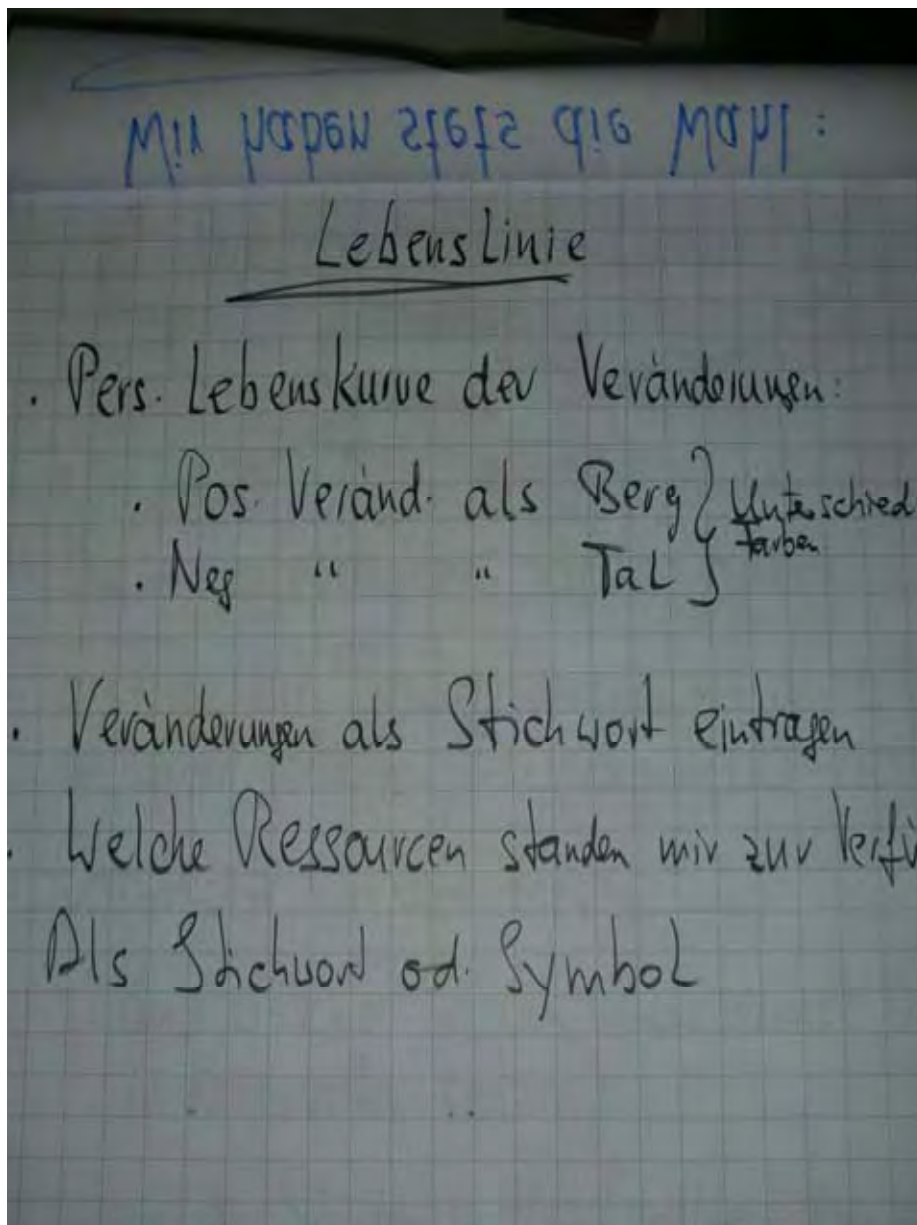 Wir haben stets die Wahl:
LebensLinie
. Pers. Lebenskurve der Veränderungen:
. Pos. Veränd. als Berg } Unterschied
farben
. Neg " " Tal
. Veränderungen als Stichwort eintragen
. Welche Ressourcen standen mir zur Verfü
Als Stichwort od. Symbol